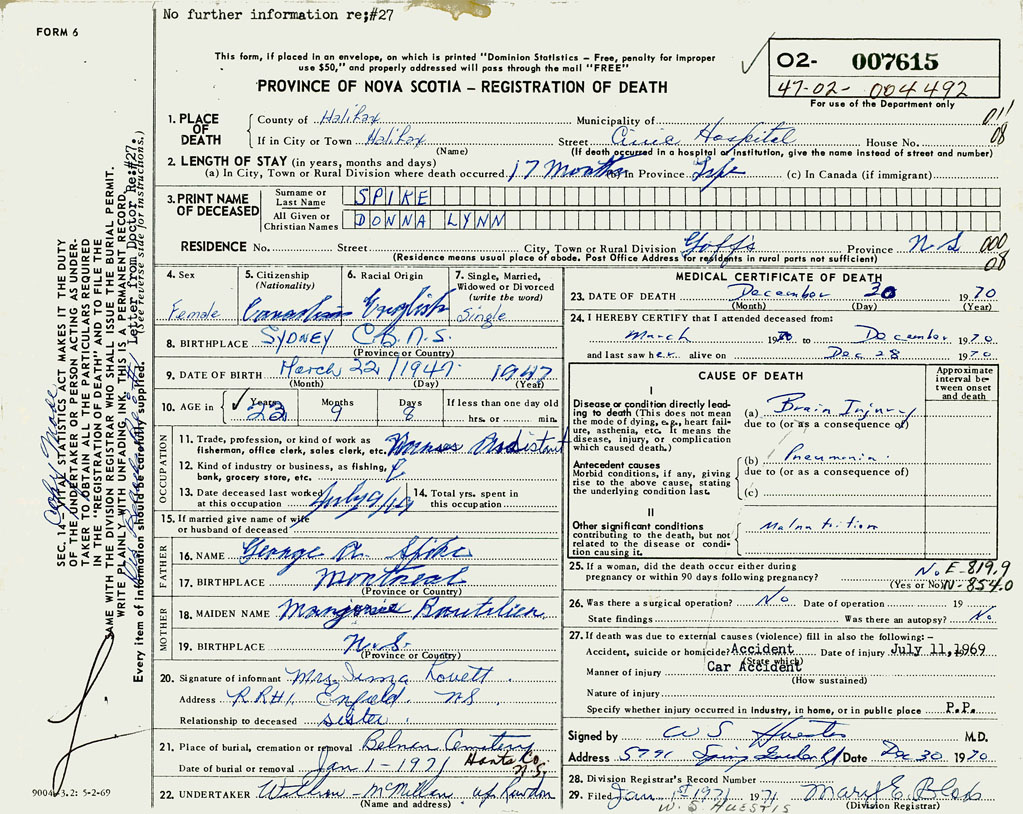 No further information re;#27
FORM 6
This form, if placed in an envelope, on which is printed "Dominion Statistics – Free, penalty for improper
use $50," and properly addressed will pass through the mail "FREE"
PROVINCE OF NOVA SCOTIA – REGISTRATION OF DEATH
02- 007615
47-02- 004492
For use of the Department only
1. PLACE OF DEATH
County of Halifax Municipality of 011
If in City or Town Halifax Street Hospital House No. 08
(Name) (If death occurred in a hospital or institution, give the name instead of street and number)
2. LENGTH OF STAY (in years, months and days)
(a) In City, Town or Rural Division where death occurred 17 Months (b) In Province Life (c) In Canada (if immigrant)
3. PRINT NAME OF DECEASED
Surname or Last Name SPIKE
All Given or Christian Names DONNA LYNN
RESIDENCE No. Street City, Town or Rural Division Goff's Province N.S 000
(Residence means usual place of abode. Post Office Address for residents in rural parts not sufficient) 08
4. Sex Female
5. Citizenship (Nationality) Canadian
6. Racial Origin English
7. Single, Married, Widowed or Divorced (write the word) Single
8. BIRTHPLACE SYDNEY C.B. N.S.
(Province or Country)
9. DATE OF BIRTH March 22 / 1947 1947
(Month) (Day) (Year)
10. AGE in Years 23 Months 9 Days 8 If less than one day old
hrs. or min.
OCCUPATION
11. Trade, profession, or kind of work as
fisherman, office clerk, sales clerk, etc.
12. Kind of industry or business, as fishing,
bank, grocery store, etc.
13. Date deceased last worked
at this occupation July 9/69
14. Total yrs. spent in
this occupation
15. If married give name of wife
or husband of deceased
FATHER
16. NAME George Spike
17. BIRTHPLACE Montreal
(Province or Country)
MOTHER
18. MAIDEN NAME Marjorie Boutilier
19. BIRTHPLACE N.S.
(Province or Country)
20. Signature of informant Mrs. Lovett
Address RR#1 Enfield NS
Relationship to deceased sister
21. Place of burial, cremation or removal Cemetery
Date of burial or removal Jan 1 - 1971 Hants Co. N.S.
22. UNDERTAKER McMillen of Rawdon
(Name and address)
MEDICAL CERTIFICATE OF DEATH
23. DATE OF DEATH December 30 1970
(Month) (Day) (Year)
24. I HEREBY CERTIFY that I attended deceased from:
March 19 to December 1970
and last saw her alive on Dec 28 1970
CAUSE OF DEATH
Approximate interval between onset and death
I
Disease or condition directly leading to death (This does not mean the mode of dying, e.g., heart failure, asthenia, etc. It means the disease, injury, or complication which caused death.)
(a) Brain Injury
due to (or as a consequence of)
Antecedent causes
Morbid conditions, if any, giving rise to the above cause, stating the underlying condition last.
(b) Pneumonia
due to (or as a consequence of)
(c)
II
Other significant conditions contributing to the death, but not related to the disease or condition causing it.
Malnutrition
25. If a woman, did the death occur either during No E-819.9
pregnancy or within 90 days following pregnancy? (Yes or No) N-854.0
26. Was there a surgical operation? No Date of operation 19
State findings Was there an autopsy? No
27. If death was due to external causes (violence) fill in also the following: –
Accident, suicide or homicide? Accident Date of injury July 11, 1969
(State which)
Manner of injury Car Accident
(How sustained)
Nature of injury
Specify whether injury occurred in industry, in home, or in public place P.P.
Signed by W S Huestis M.D.
Address 5991 Spring Garden Rd Date Dec 30 1970
28. Division Registrar's Record Number
29. Filed Jan 1st 1971 1971 Mary E.
(Division Registrar)
W. S. HUESTIS
SEC. 14 – VITAL STATISTICS ACT MAKES IT THE DUTY
OF THE UNDERTAKER OR PERSON ACTING AS UNDERTAKER
TO OBTAIN ALL THE PARTICULARS REQUIRED
IN THE "REGISTRATION OF DEATH" AND TO FILE THE
SAME WITH THE DIVISION REGISTRAR WHO SHALL ISSUE THE BURIAL PERMIT.
WRITE PLAINLY WITH UNFADING INK. THIS IS A PERMANENT RECORD.
Every item of information should be carefully supplied. (See reverse side for instructions.)
Letter from Doctor Re:#27.
Copy Made
9004-3.2: 5-2-69